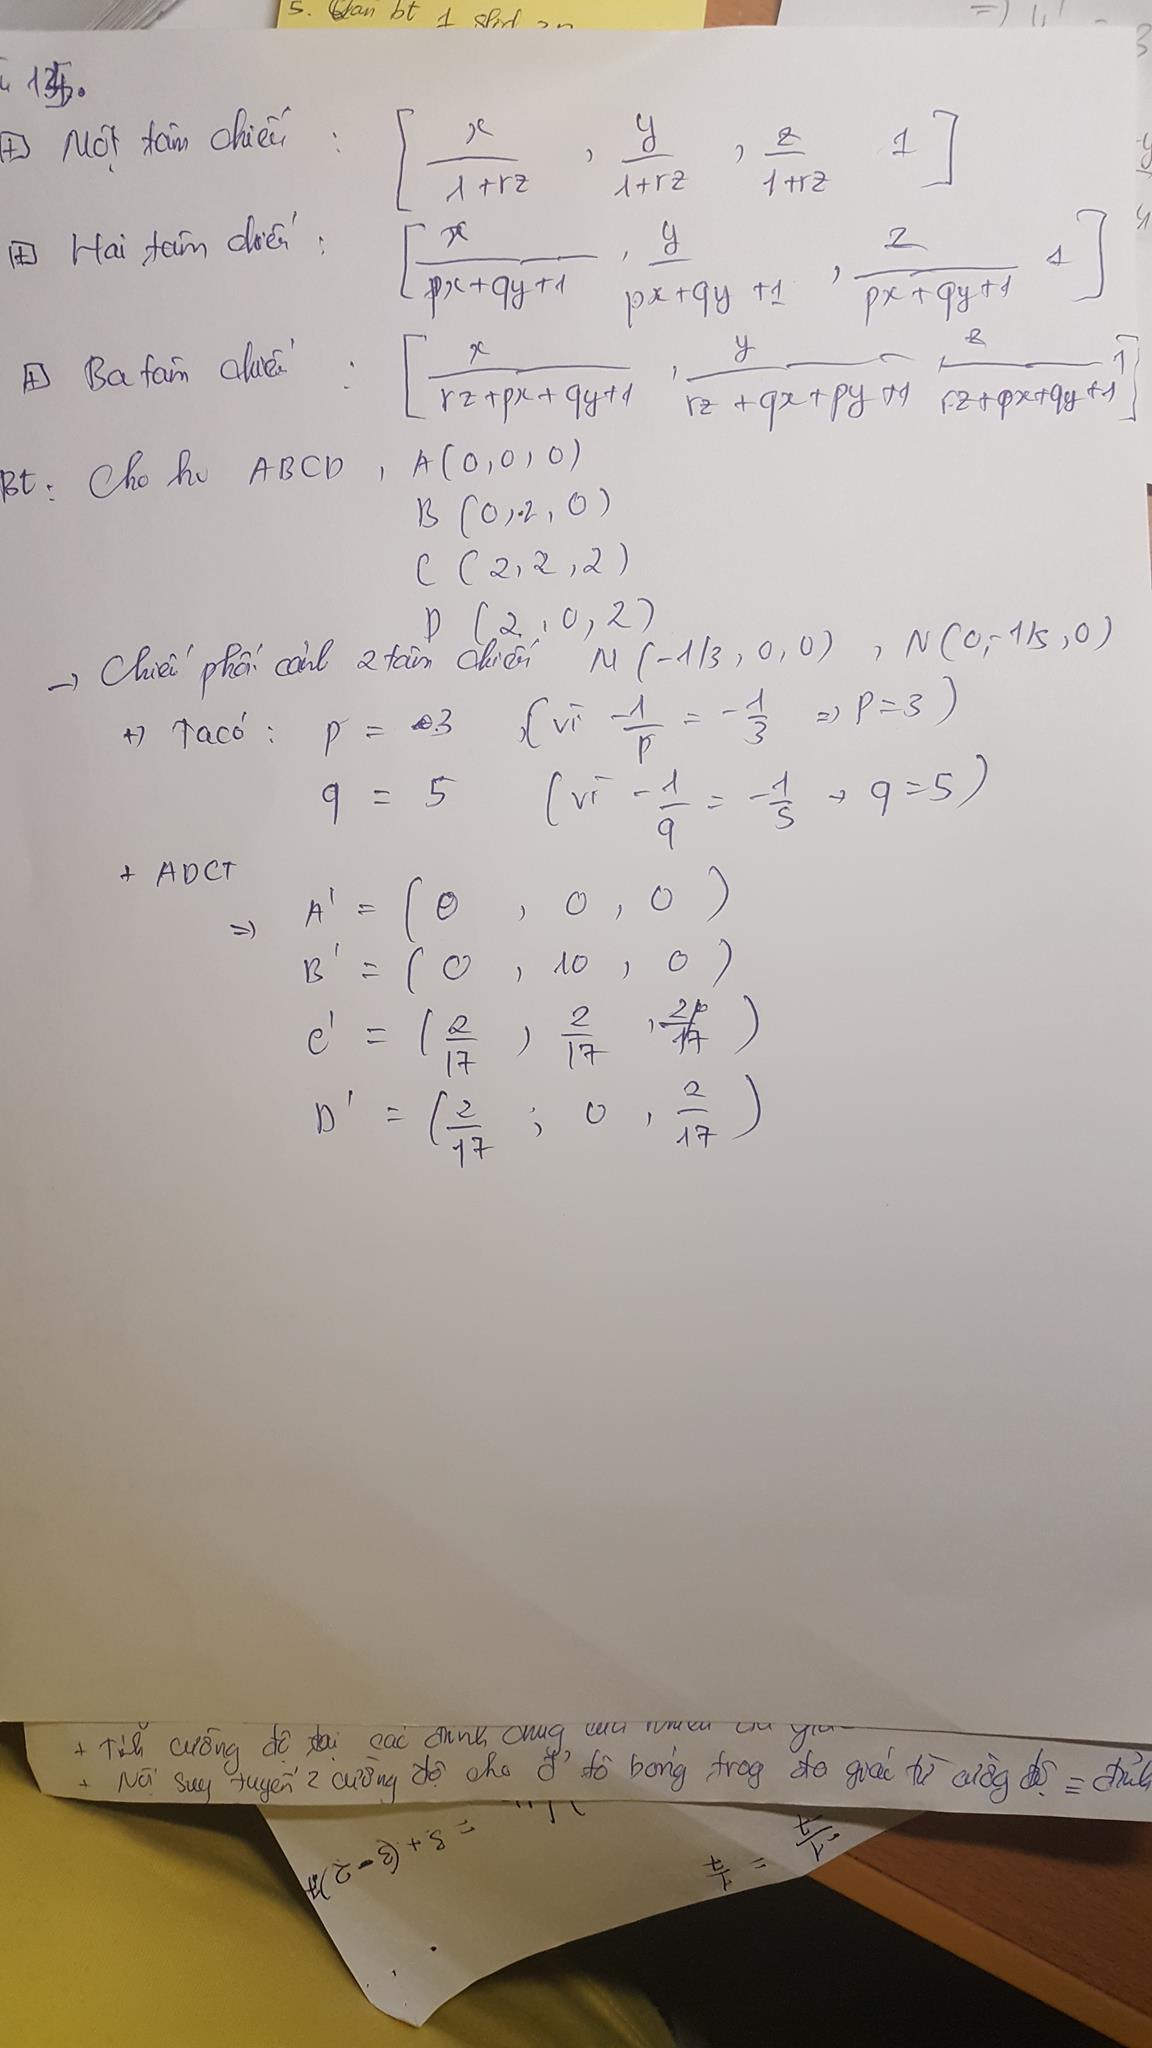 5. Quan bt 1
Một tâm chiếu : [ x/(1+rz) , y/(1+rz) , z/(1+rz) 1 ]
Hai tâm chiếu : [ x/(px+qy+1) , y/(px+qy+1) , z/(px+qy+1) 1 ]
Ba tâm chiếu : [ x/(rz+px+qy+1) , y/(rz+qx+py+1) z/(rz+px+qy+1) 1 ]
Bt: Cho hv ABCD , A(0,0,0)
B (0,2,0)
C (2,2,2)
D (2,0,2)
→ Chiếu phối cảnh 2 tâm chiếu M(-1/3, 0, 0) , N(0,-1/5,0)
+) Ta có : p = 3 (vì -1/p = -1/3 => p=3)
q = 5 (vì -1/q = -1/5 → q=5)
+ ADCT
=> A' = (0 , 0, 0)
B' = (0 , 10 , 0)
C' = (2/17 , 2/17 , 2/17)
D' = (2/17 ; 0 , 2/17)
+ Tính cường độ tại các đỉnh chung của nhiều đa giác
+ Nội suy tuyến 2 cường độ cho ∀ tô bóng trog đa giác từ cường độ = đỉnh
= 3+(3-2)7